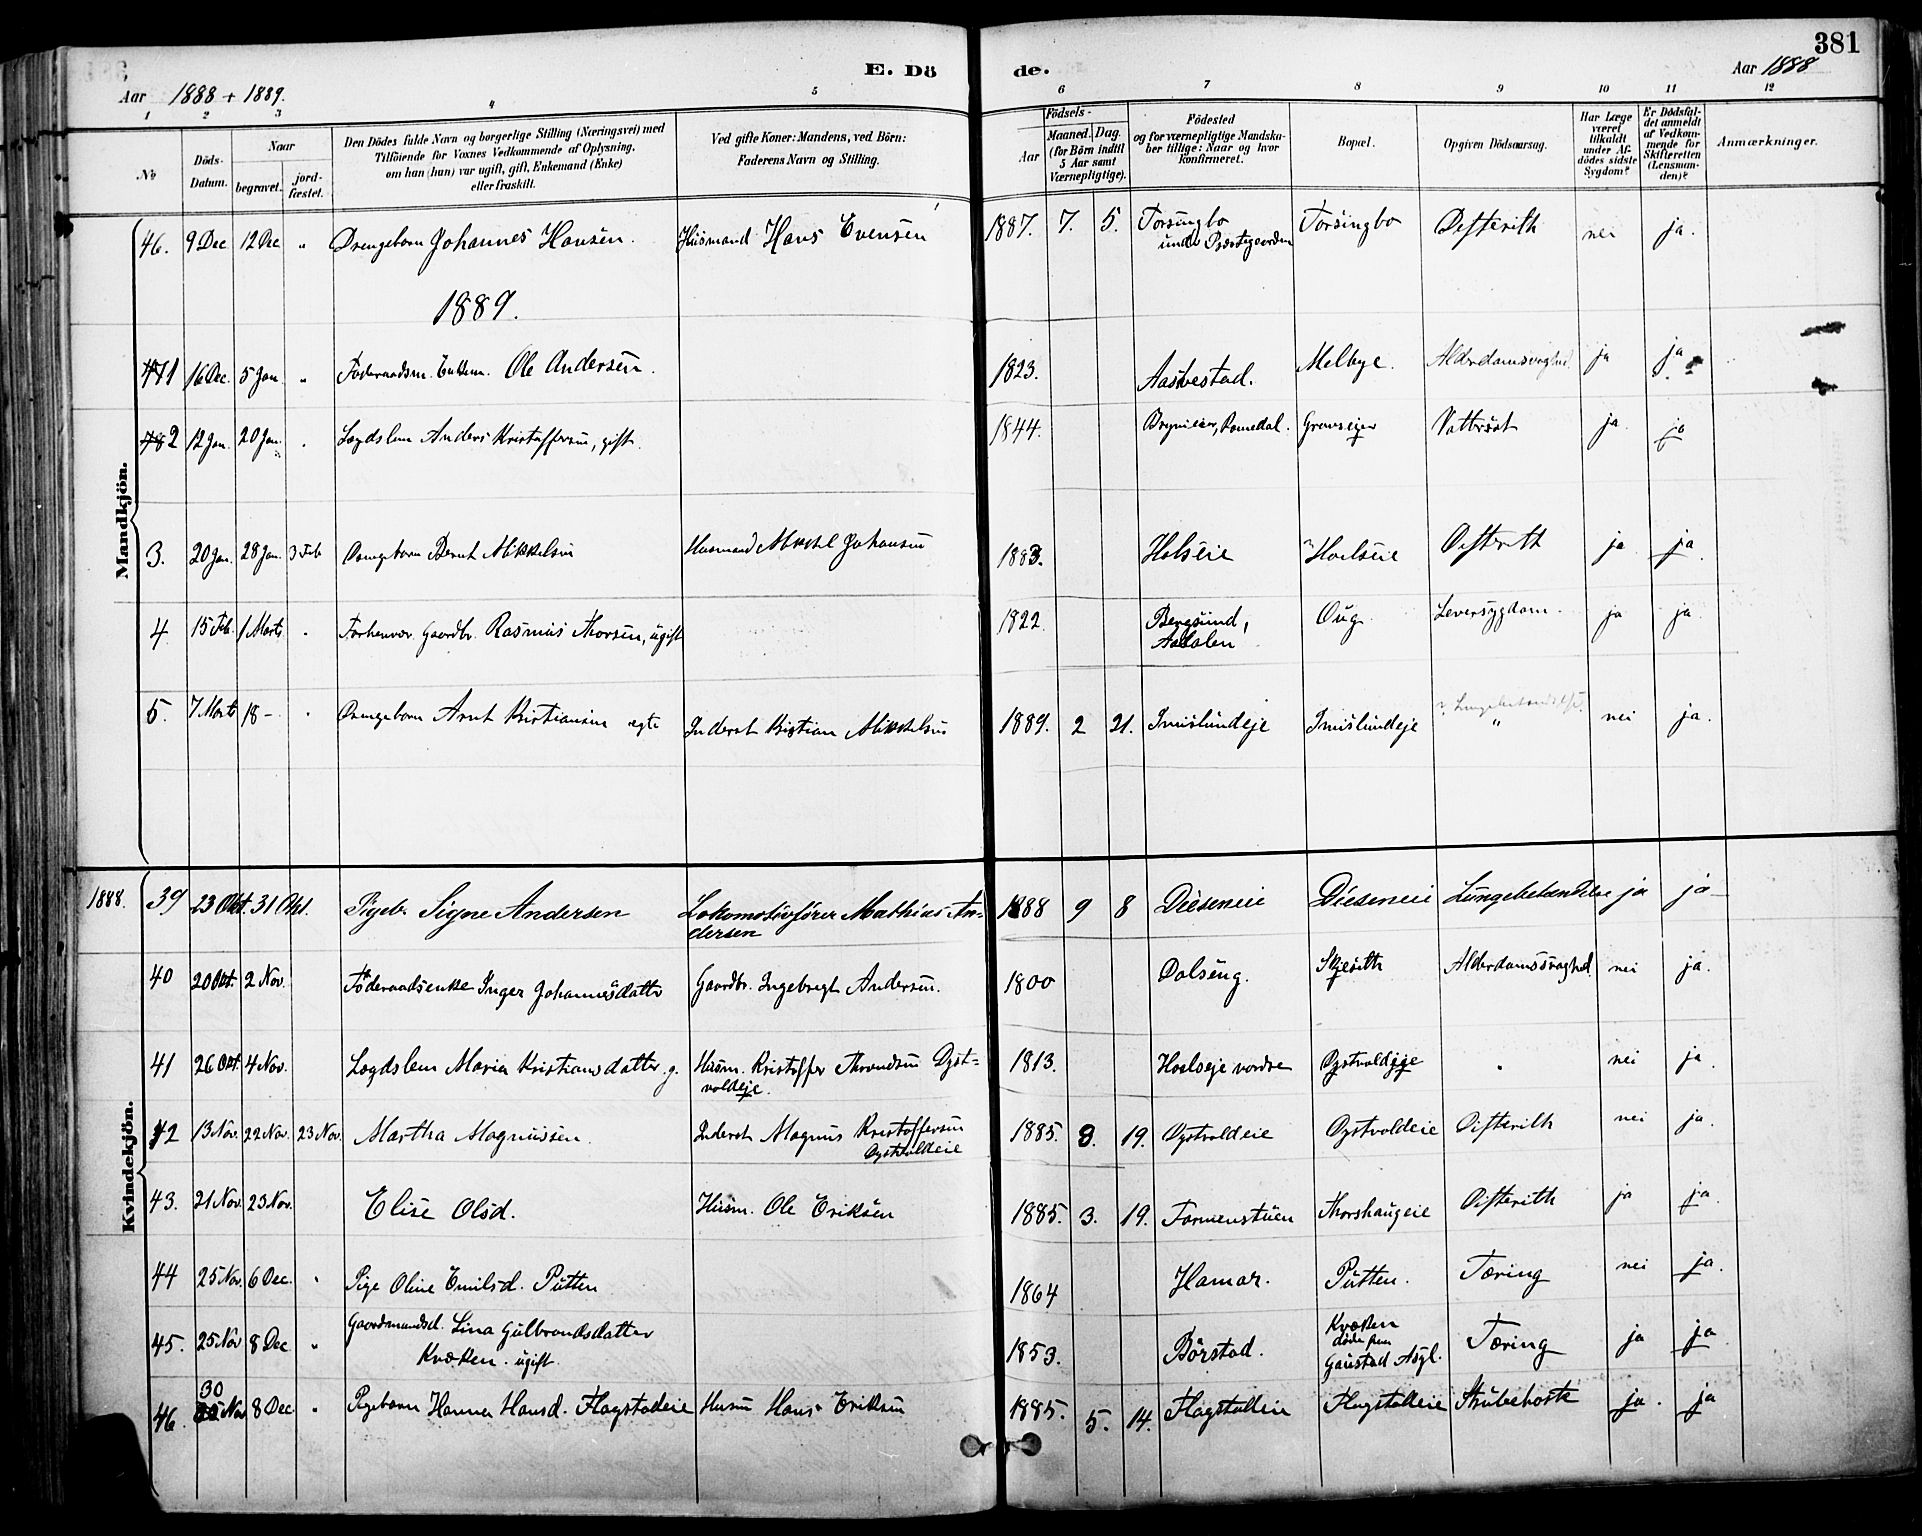 381
E. Döde.
Aar 1888 + 1889.
Aar 1888
1 2 3 4 5 6 7 8 9 10 11 12
No
Döds-Datum.
Naar
begravet.
jord-fæstet.
Den Dödes fulde Navn og borgerlige Stilling (Næringsvei) med
Tilföiende for Voxnes Vedkommende af Oplysning,
om han (hun) var ugift, gift, Enkemand (Enke)
eller fraskilt.
Ved gifte Koner: Mandens, ved Börn:
Faderens Navn og Stilling.
Födsels-
Aar
Maaned. Dag.
(for Börn indtil
5 Aar samt
Værnepligtige).
Födested
og for værnepligtige Mandska-
ber tillige: Naar og hvor
konfirmeret.
Bopæl.
Opgiven Dödsaarsag.
Har Læge
været
tilkaldt
under Af-
dödes sidste
Sygdom?
Er Dödsfal-
det anmeldt
af Vedkom-
mende for
Skifteretten
(Lensman-
den)?
Anmærkninger.
Mandkjön.
46. 9 Dec 12 Dec " Drengebarn Johannes Hansen. Husmand Hans Evensen 1887. 7. 5. Torsingbo under Præstegaarden Torsingbo Difterith nei ja.
1889.
471 16 Dec. 5 Jan. " Föderaadsm. Enkem. Ole Andersen. 1823. Aasvestad. Melbye. Alderdomssvaghed. ja ja
482 12 Jan. 20 Jan. " Lægdslem Anders Kristoffersen, gift. 1844. Romedal. Vattersot ja. ja
3. 20 Jan. 28 Jan. 3 Feb Drengebarn Bernt Mikkelsen Husmand Mikkel Johansen 1883. Holseie Hoelseie Difterith ja ja.
4 15 Feb. 1 Marts " Forhenvær. Gaardbr. Rasmus Thorsen, ugift 1822. Bergsund, Aadalen Oug. Leversygdom. ja ja.
5. 7 Marts 18 – " Drengebarn Arnt Kristiansen ægte Inderst Kristian Mikkelsen 1889. 2 21. Imislundeje Imislundeje " nei ja.
Kvindekjön.
1888. 39 23 Okt. 31 Okt. Pigeb. Signe Andersen Lokomotivförer Mathias Andersen 1888 9 8 Dieseneie Dieseneie Lungebetændelse ja ja
40 20 Okt. 2 Nov. Föderaadsenke Inger Johannesdatter Gaardbr. Ingebregt Andersen. 1800 Dalseng. Skjesith Alderdomssvaghed nei ja.
41 26 Okt. 4 Nov. Lægdslem Maria Kristiansdatter g. Husm. Kristoffer Throndsen Dystvoldeje. 1813. Hoelseje vordre Dystvoldeje " nei ja.
42 13 Nov. 22 Nov. 23 Nov. Martha Magnussen. Inderst Magnus Kristoffersen Dystvoldeie 1885. 8. 19. Dystvoldeie Dystvoldeie Difterith nei ja.
43. 21 Nov. 23 Nov. Elise Olsd. Husm. Ole Eriksen 1885. 3. 19. Tormenstuen Thorshaugeie Difterith ja ja.
44 25 Nov. 6 Dec. " Pige Oline Emilsd. Putten 1864 Hamar. Putten. Tæring nei ja.
45. 25 Nov 8 Dec " Gaardmandsd. Lina Gulbrandsdatter Kvæken. ugift. 1853. Börstad. Kvæken döde paa Gaustad Asyl. Tæring ja ja.
46. 30 Nov 8 Dec " Pigebarn Hanna Hansd. Flagstadeie Husm Hans Eriksen 1885. 5. 14. Flagstadeie Flagstadeie Strubehoste ja. ja